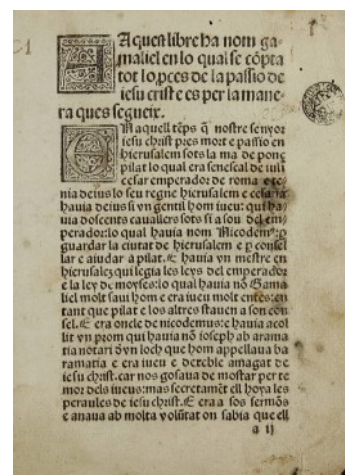 Aquest libre ha nom ga-
maliel en lo qual se cõpta
tot lo ꝓces de la passio de
iesu crist e es per la mane-
ra ques segueix.
EN aquell tẽps q̃ nostre senyor
iesu christ pres mort e passio en
hierusalem sots la ma de ponç
pilat lo qual era senescal de iuli
cesar emperador de roma e te-
nia deius lo seu regne hierusalem e cesarea
hauia deius si vn gentil hom iueu: qui ha-
uia doscents cauallers sots si a sou del em-
perador: lo qual hauia nom Nicodemꝰ: ꝑ
guardar la ciutat de hierusalem e ꝑ consel
lar e aiudar a pilat. E hauia vn mestre en
hierusalẽ qui legia les leys del emperador
e la ley de moyses: lo qual hauia nõ Gama
liel molt saui hom e era iueu molt entes: en
tant que pilat e los altres stauen a son con
sel. E era oncle de nicodemus: e hauia acol
lit vn prom qui hauia nõ ioseph ab arama
tia notari d̓vn loch que hom appellaua ba
ramatia e era iueu e deteble amagat de
iesu christ. car nos gosaua de mostar per te
mor dels iueus: mas secretamẽt ell hoya les
peraules de iesu christ. E era a sos sermõs
e anaua ab molta volũtat on sabia que ell
a ij